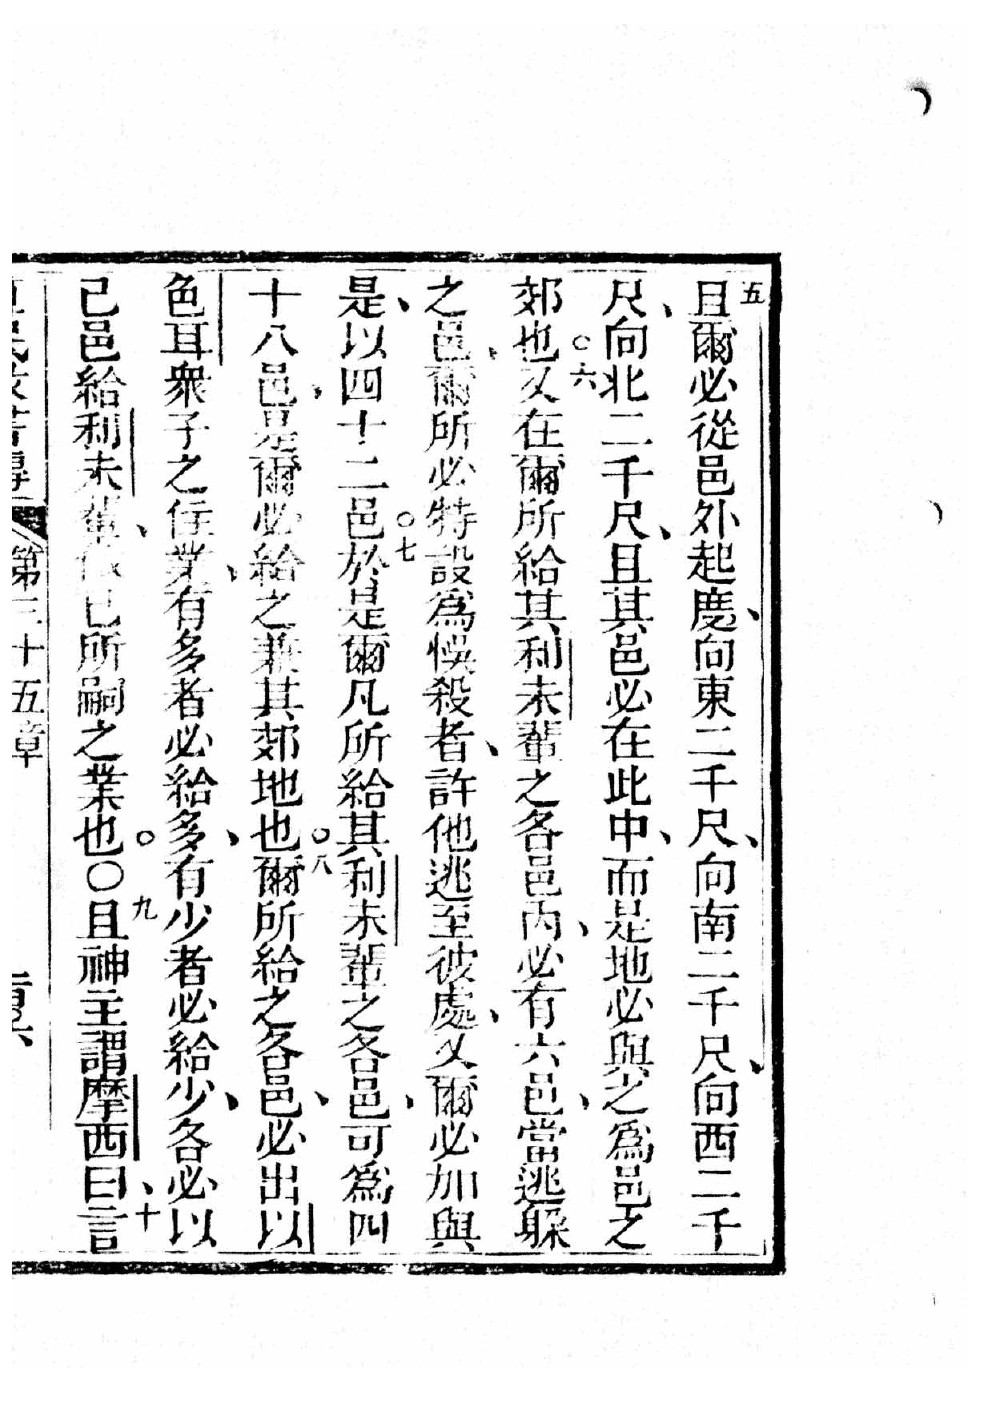 五且爾必從邑外起度、向東二千尺、向南二千尺、向西二千
尺、向北二千尺、且其邑必在此中、而是地必與之爲邑之
郊也。六又在爾所給其利未輩之各邑內、必有六邑、當逃躱
之邑、爾所必特設爲悞殺者、許他逃至彼處、又爾必加與
是、以四十二邑。七於是爾凡所給其利未輩之各邑、可爲四
十八邑、是爾必給之兼其郊地也。八爾所給之各邑、必出以
色耳衆子之住業、有多者必給多、有少者必給少、各必以
己邑給利未輩、依己所嗣之業也。〇九且神主謂摩西曰、十言
第三十五章